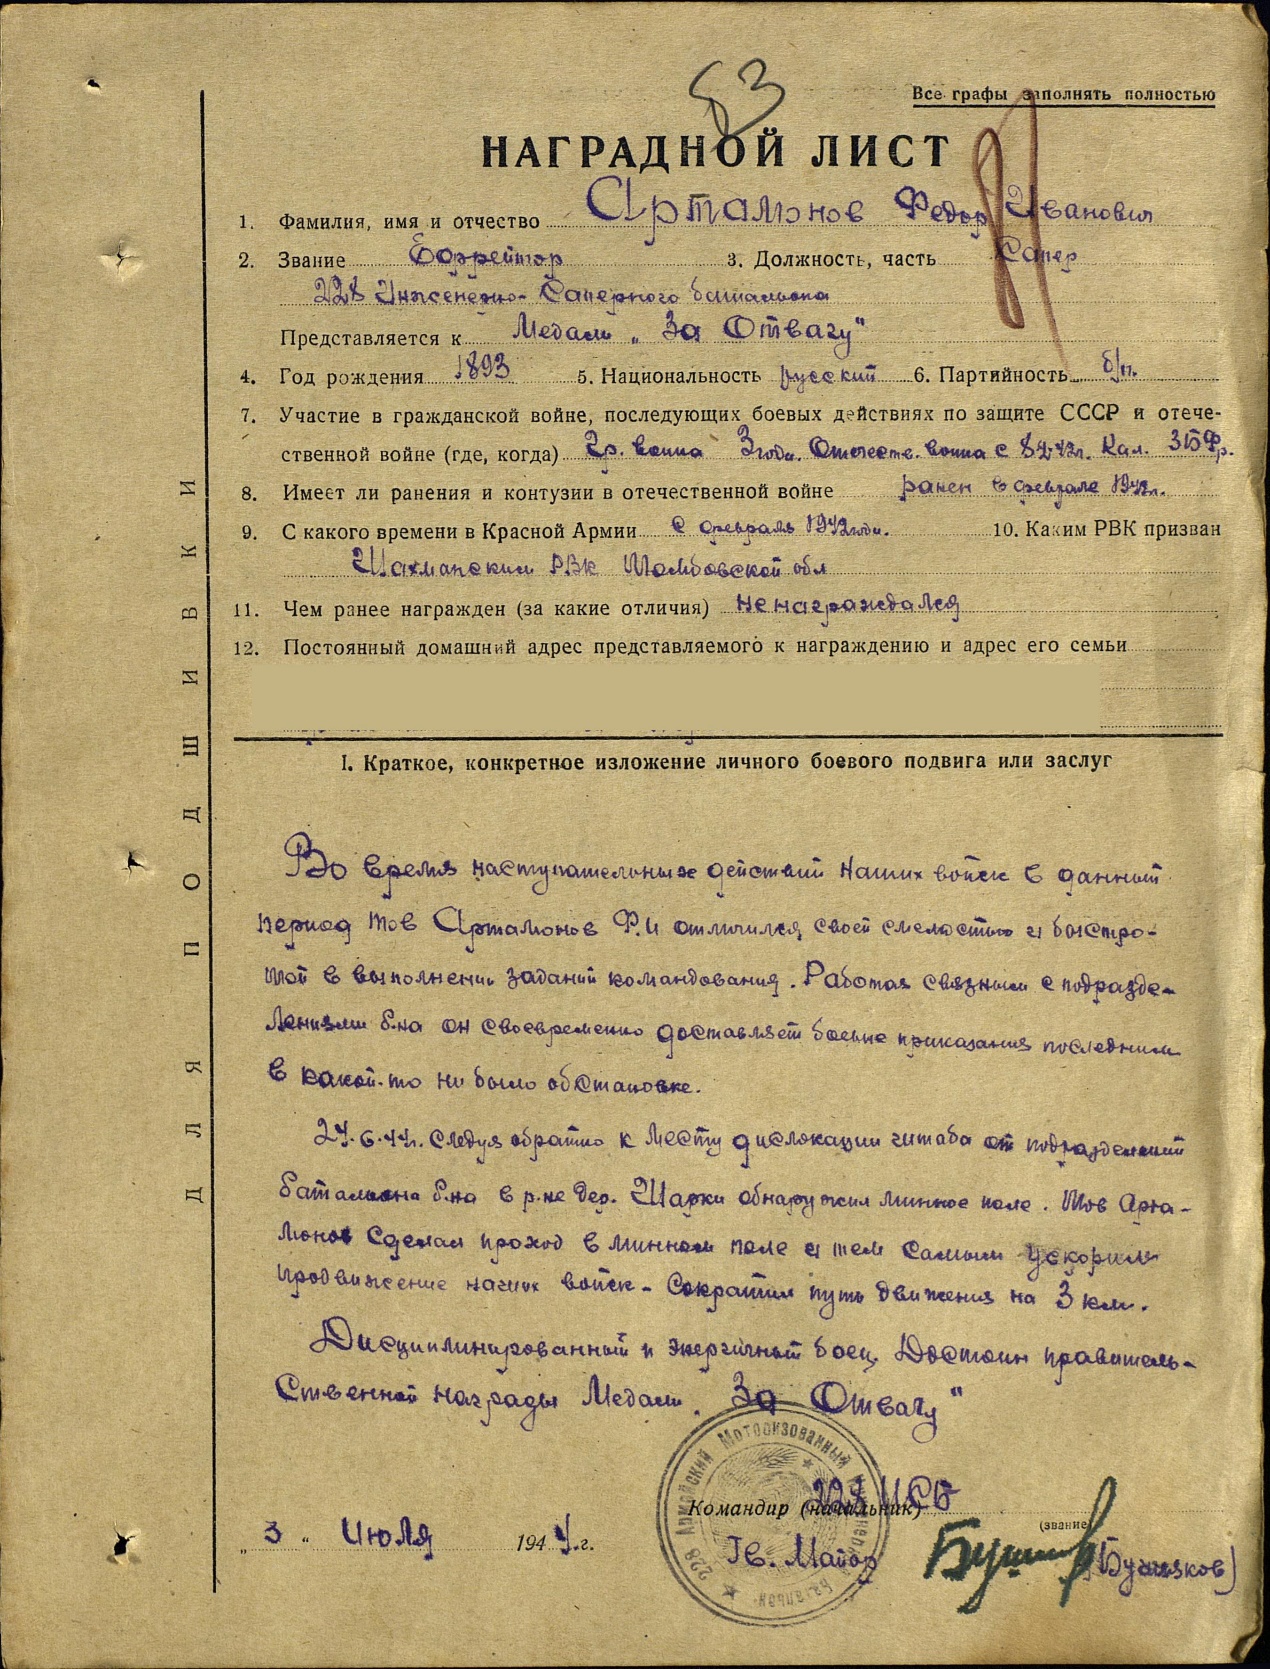 53
Все графы заполнять полностью
НАГРАДНОЙ ЛИСТ
1. Фамилия, имя и отчество Артамонов Федор Иванович
2. Звание Ефрейтор 3. Должность, часть Сапер
228 Инженерно-Саперного батальона
Представляется к Медали „За Отвагу"
4. Год рождения 1893 5. Национальность русский 6. Партийность б/п.
7. Участие в гражданской войне, последующих боевых действиях по защите СССР и отече-
ственной войне (где, когда) Гр. воина 3 года. Отечеств. воина с Кал. 3БФр.
8. Имеет ли ранения и контузии в отечественной войне ранен в феврале
9. С какого времени в Красной Армии с февраль 1942 года. 10. Каким РВК призван
РВК Тамбовской обл
11. Чем ранее награжден (за какие отличия) не награждался
12. Постоянный домашний адрес представляемого к награждению и адрес его семьи
ДЛЯ ПОДШИВКИ
I. Краткое, конкретное изложение личного боевого подвига или заслуг
Во время наступательных действий наших войск в данный
период тов Артамонов Ф.И отличился своей смелостью и быстро-
той в выполнении заданий командования. Работая связным с подразде-
лениями б-на он своевременно доставляет боевые приказания последним
в какой-то ни было обстановке.
24.6.44г. следуя обратно к месту дислокации штаба от подразделений
батальона б-на в р-не дер. Шарки обнаружил минное поле. Тов Арта-
монов сделал проход в минном поле и тем самым ускорил
продвижение наших войск - Сократил путь движения на 3 км.
Дисциплинированный и энергичный боец. Достоин правитель-
ственной награды Медали „За Отвагу"
228 Армейский Моторизованный Инженерный Батальон
228 ИСБ
Командир (начальник)
(звание)
„3" Июля 1944 г. Гв. Майор (Бушуков)